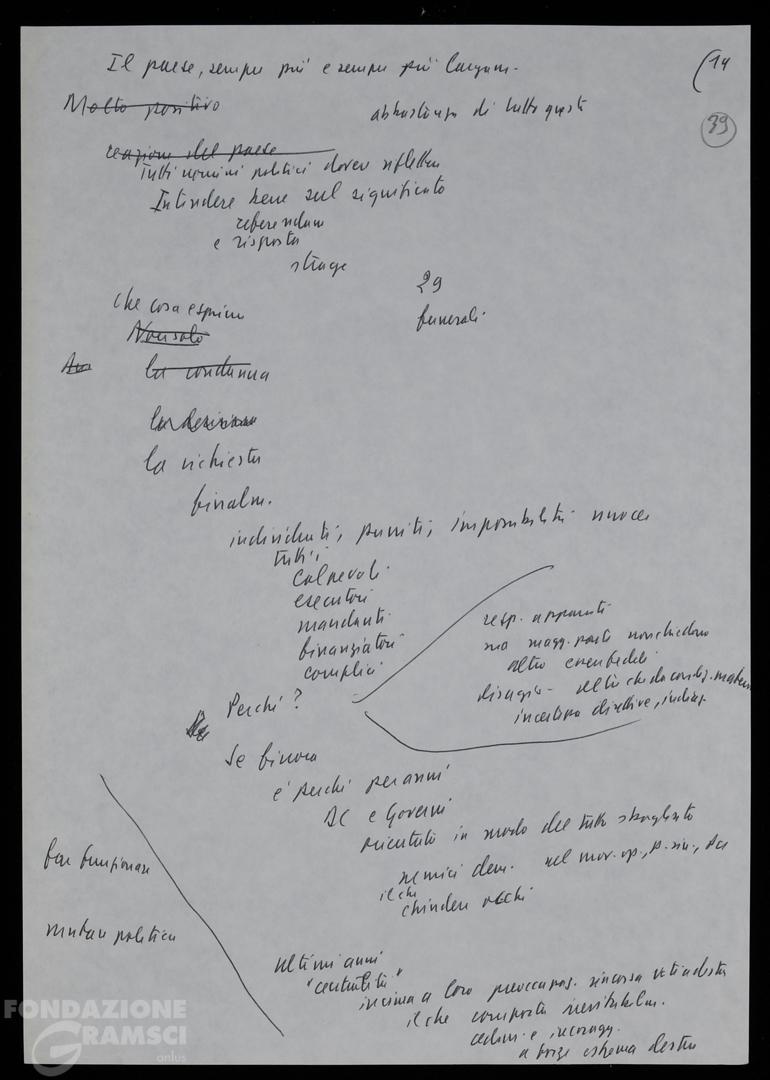 (14
39
Il paese, sempre più e sempre più largam.
Molto positivo
abbastanza di tutto questo
reazione del paese
Tutti uomini politici
Intendere bene sul significato
referendum
e risposta
strage
29
funerali
che cosa esprime
Non solo
la condanna
la decisione
la richiesta
finalm.
individuati, puniti, impossibilità nuocere
tutti i
colpevoli
esecutori
mandanti
finanziatori
complici
resp. apparati
ma magg. parte non chiedono
altro
disagio - oltre che da condiz. mater.
incertezza direttive, indirizzi
Perché?
Se finora
è perché per anni
DC e Governi
orientato in modo del tutto sbagliato
nemici dem. nel mov. op.,
il che
chiudere occhi
far funzionare
mutare politica
ultimi anni
"centralità"
in cima a loro preoccupaz. rincorsa voti a destra
il che comporta inevitabilm.
cedim. e incoragg.
a forze estrema destra
FONDAZIONE
GRAMSCI
onlus